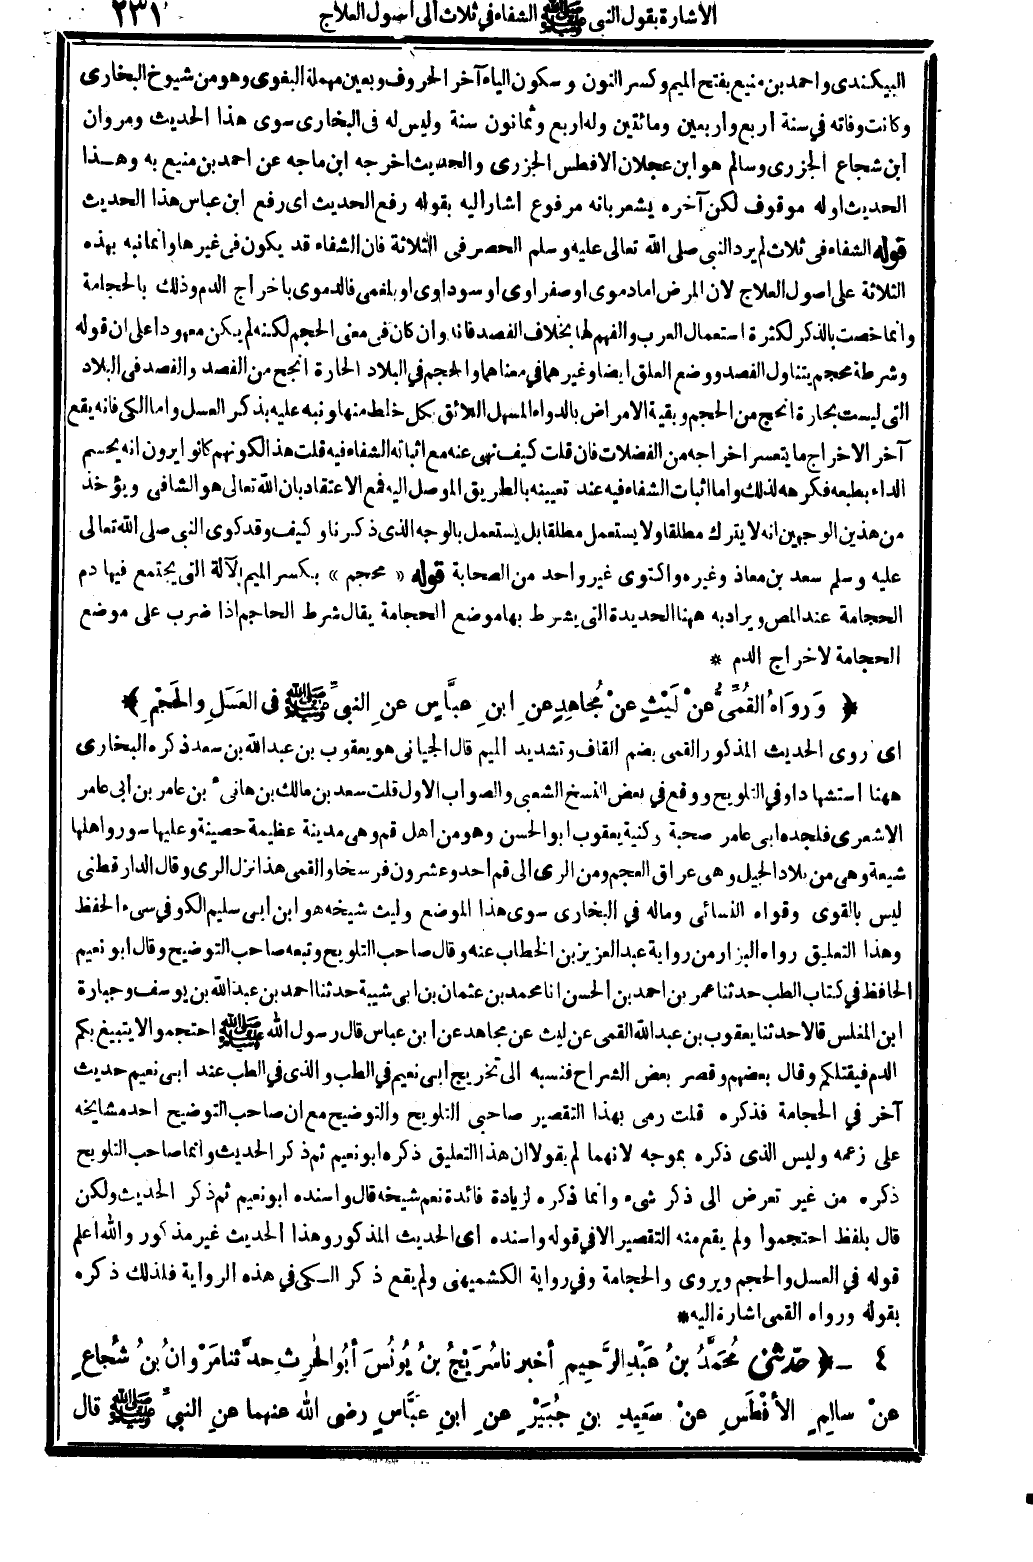 الاشارة بقول النبي ﷺ الشفاء في ثلاث الى اصول العلاج ٢٣١
البيكندى واحمد بن منيع بفتح الميم وكسر النون وسكون الياء آخر الحروف وبعين مهملة البغوى وهو من شيوخ البخارى
وكانت وفاته في سنة أربع وأربعين ومائتين وله اربع وثمانون سنة وليس له فى البخارى سوى هذا الحديث ومروان
ابن شجاع الجزرى وسالم هو ابن عجلان الافطس الجزرى والحديث اخرجه ابن ماجه عن احمد بن منيع به وهــذا
الحديث اوله موقوف لكن آخره يشعر بانه مرفوع اشار اليه بقوله رفع الحديث اى رفع ابن عباس هذا الحديث
قوله الشفاء فى ثلاث لم يرد النبى صلى الله تعالى عليه وسلم الحصر فى الثلاثة فان الشفاء قد يكون فى غيرها وانما نبه بهذه
الثلاثة على اصول العلاج لان المرض اما دموى او صفراوى او سوداوى او بلغمى فالدموى باخراج الدم وذلك بالحجامة
وانما خصت بالذكر لكثرة استعمال العرب والفهم لها بخلاف الفصد فانه وان كان فى معنى الحجم لكنه لم يكن معهودا على ان قوله
وشرطة محجم يتناول الفصد ووضع العلق ايضا وغيرهما في معناهما والحجم في البلاد الحارة انجح من الفصد والفصد فى البلاد
التى ليست بحارة انجح من الحجم وبقية الامراض بالدواء المسهل اللائق بكل خلط منها ونبه عليه بذكر العسل واما الكى فانه يقع
آخر الاخراج ما يتعسر اخراجه من الفضلات فان قلت كيف نهى عنه مع اثباته الشفاء فيه قلت هذا لكونهم كانوا يرون انه يحسم
الداء بطبعه فكرهه لذلك واما اثبات الشفاء فيه عند تعيينه بالطريق الموصل اليه فمع الاعتقاد بان الله تعالى هو الشافى ويؤخذ
من هذين الوجهين انه لا يترك مطلقا ولا يستعمل مطلقا بل يستعمل بالوجه الذى ذكرناه وكيف وقد كوى النبى صلى الله تعالى
عليه وسلم سعد بن معاذ وغيره واكتوى غير واحد من الصحابة قوله « محجم » بكسر الميم الآلة التى يجتمع فيها دم
الحجامة عند المص ويراد به ههنا الحديدة التى يشرط بها موضع الحجامة يقال شرط الحاجم اذا ضرب على موضع
الحجامة لاخراج الدم *
﴿ وَرَوَاهُ القُمِّىُّ عنْ لَيْثٍ عنْ مُجاهِدٍ عنِ ابنِ عبَّاسٍ عنِ النبىِّ ﷺ فى العَسَلِ والحَجْمِ ﴾
اى روى الحديث المذكور القمى بضم القاف وتشديد الميم قال الجيانى هو يعقوب بن عبدالله بن سعد ذكره البخارى
ههنا استشهادا وفي التلويح ووقع في بعض النسخ الشعبى والصواب الاول قلت سعد بن مالك بن هانىء بن عامر بن أبى عامر
الاشعرى فلجده ابى عامر صحبة وكنية يعقوب ابو الحسن وهو من أهل قم وهى مدينة عظيمة حصينة وعليها سور واهلها
شيعة وهى من بلاد الجبل وهى عراق العجم ومن الرى الى قم احد وعشرون فرسخا والقمى هذا نزل الرى وقال الدارقطنى
ليس بالقوى وقواه النسائى وماله في البخارى سوى هذا الموضع وليث شيخه هو ابن ابى سليم الكوفي سىء الحفظ
وهذا التعليق رواه البزار من رواية عبد العزيز بن الخطاب عنه وقال صاحب التلويح وتبعه صاحب التوضيح وقال ابو نعيم
الحافظ في كتاب الطب حدثنا عمر بن احمد بن الحسن انا محمد بن عثمان بن ابى شيبة حدثنا احمد بن عبدالله بن يوسف وجبارة
ابن المغلس قالا حدثنا يعقوب بن عبدالله القمى عن ليث عن مجاهد عن ابن عباس قال رسول الله ﷺ احتجموا لا يتبيغ بكم
الدم فيقتلكم وقال بعضهم وقصر بعض الشراح فنسبه الى تخريج ابى نعيم في الطب والذى في الطب عند ابى نعيم حديث
آخر في الحجامة فذكره قلت رمى بهذا التقصير صاحبى التلويح والتوضيح مع ان صاحب التوضيح احد مشايخه
على زعمه وليس الذى ذكره بموجه لانهما لم يقولا ان هذا التعليق ذكره ابو نعيم ثم ذكر الحديث وانما صاحب التلويح
ذكره من غير تعرض الى ذكر شىء وانما ذكره لزيادة فائدة نعم شيخه قال واسنده ابو نعيم ثم ذكر الحديث ولكن
قال بلفظ احتجموا ولم يقع منه التقصير الا في قوله واسنده اى الحديث المذكور وهذا الحديث غير مذكور والله اعلم
قوله في العسل والحجم ويروى والحجامة وفي رواية الكشميهنى ولم يقع ذكر الـكى في هذه الرواية فلذلك ذكره
بقوله ورواه القمى اشارة اليه *
٤ ــ ﴿ حدّثنى مُحَمَّدُ بنُ عَبْدِ الرَّحِيمِ أخبرنا سُرَيْجُ بنُ يُونُسَ أبُو الحٰرِثِ حدَّثنا مَرْوانُ بنُ شُجاعٍ
عنْ سالِمٍ الأفْطَسِ عنْ سَعِيدِ بنِ جُبَيْرٍ عنِ ابنِ عبَّاسٍ رضى الله عنهما عنِ النبىِّ ﷺ قال